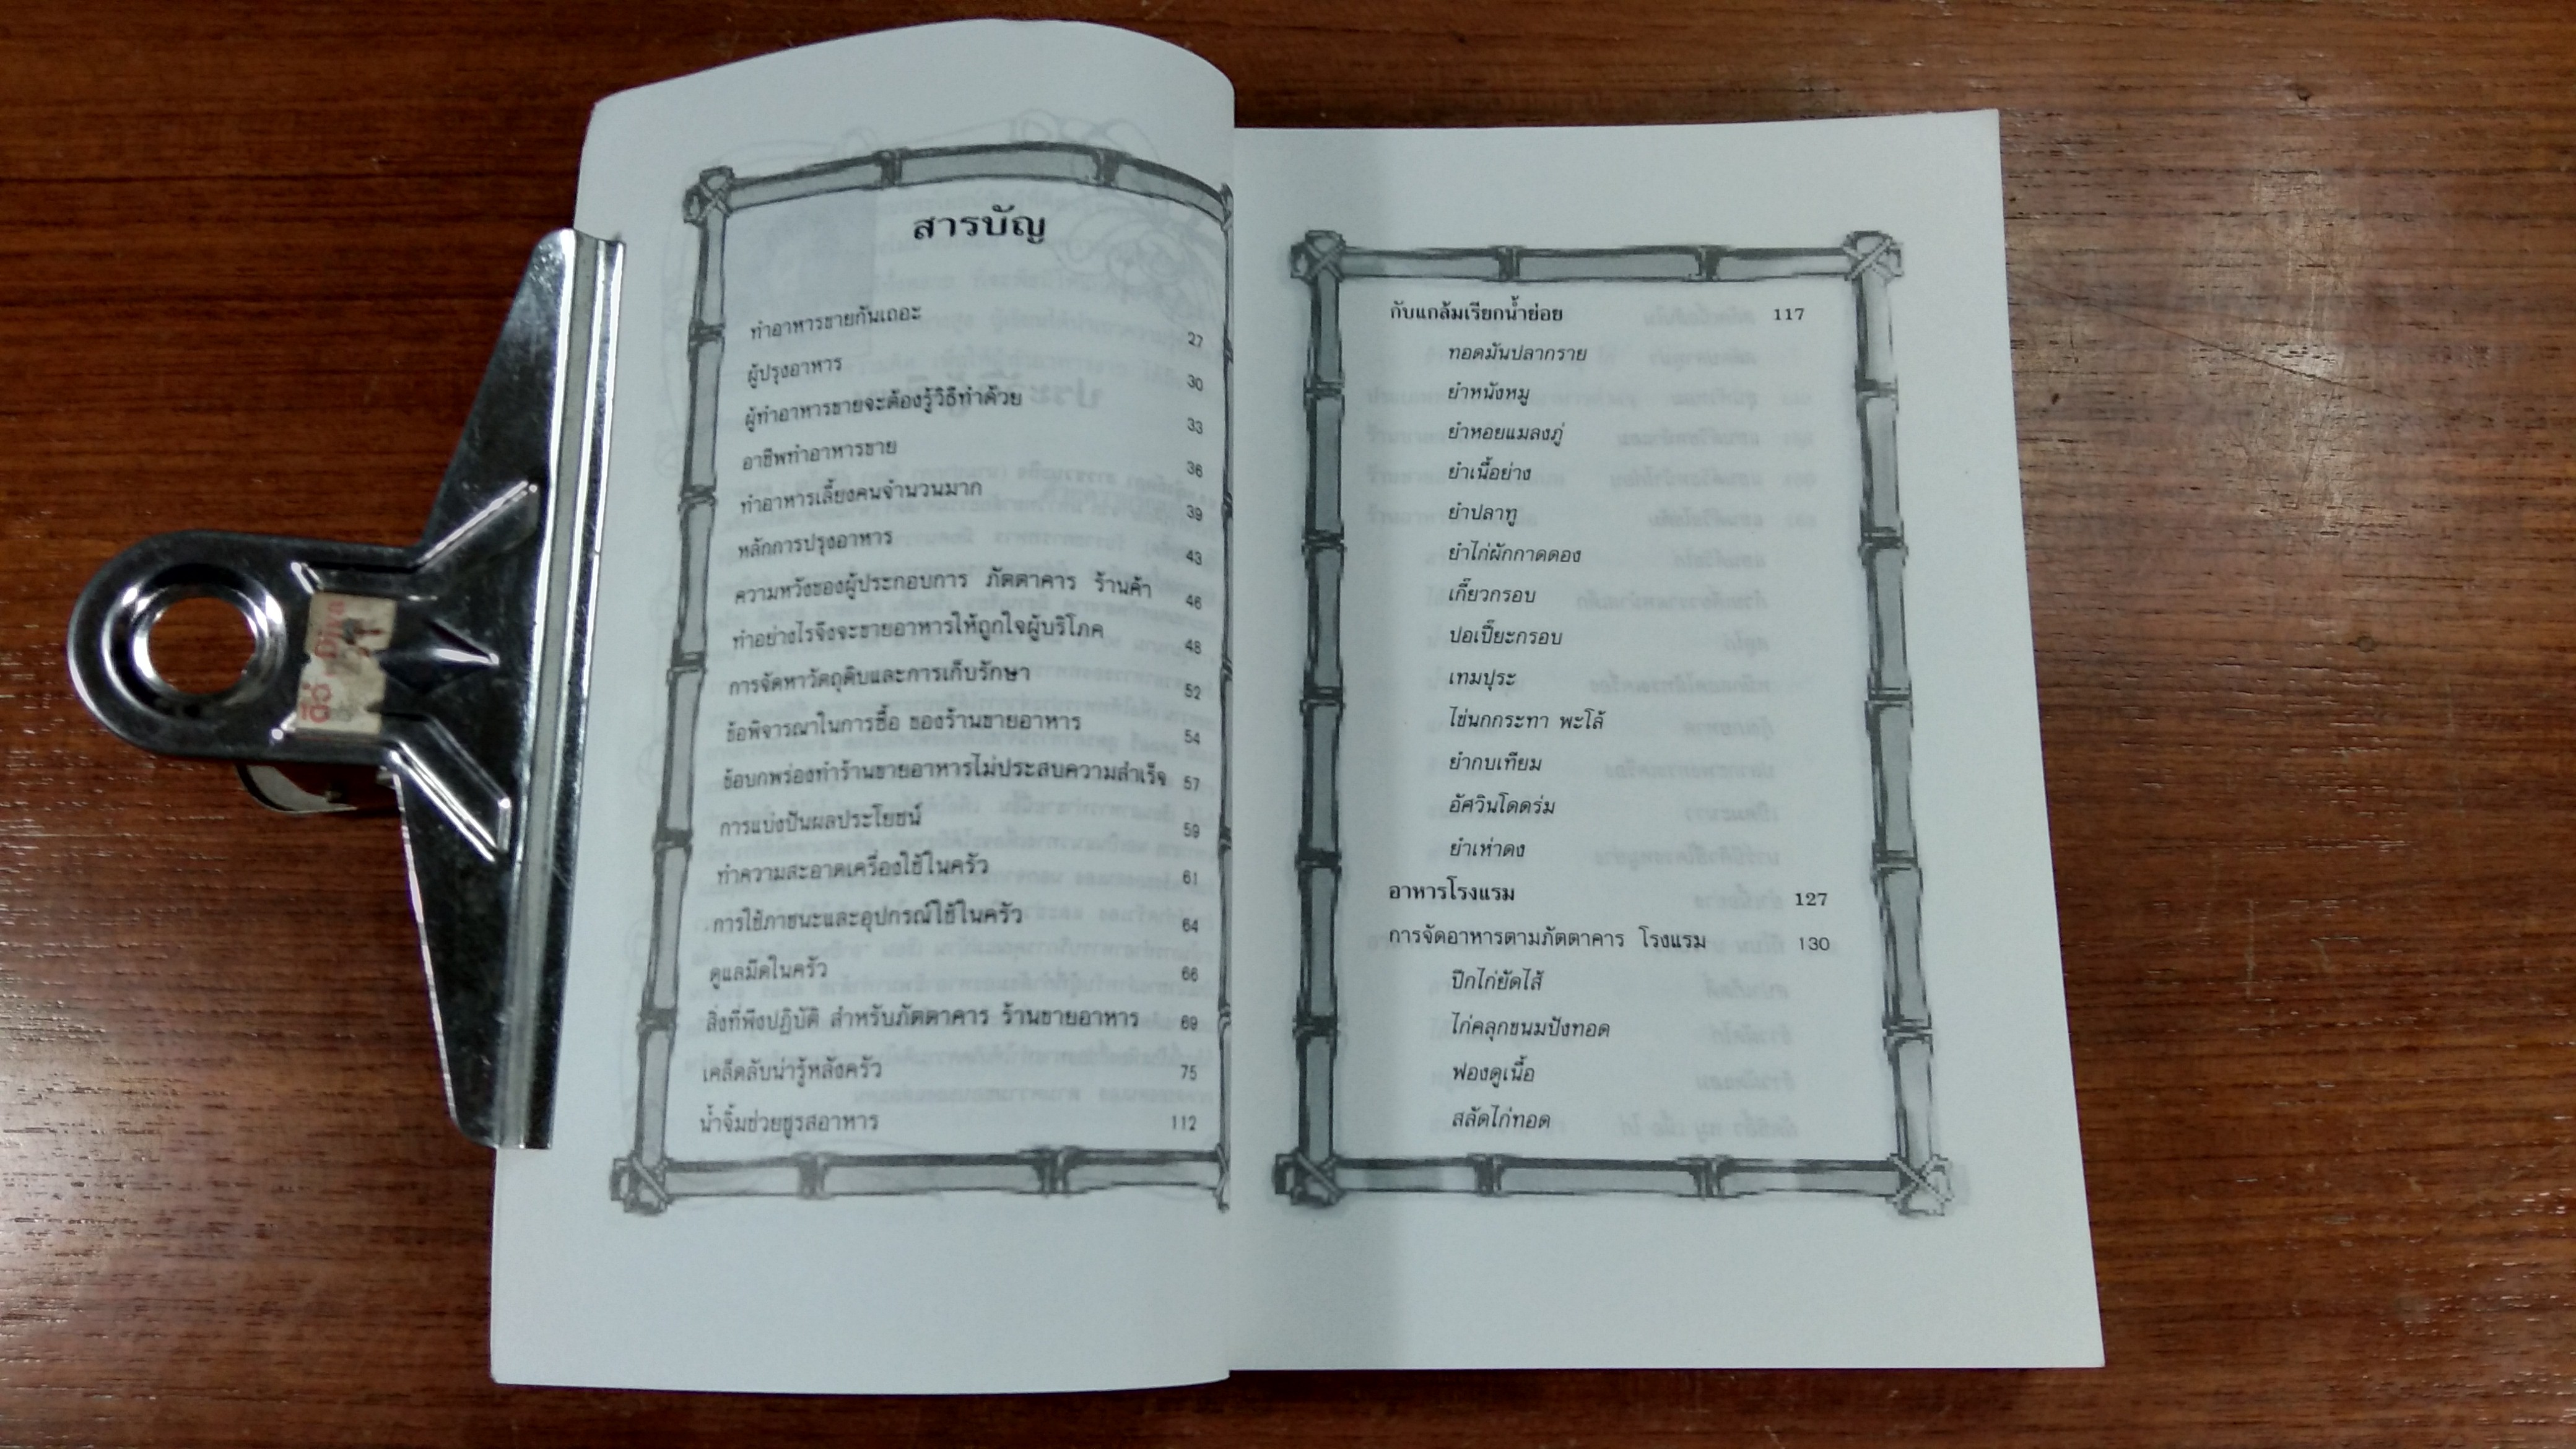 สารบัญ
ทำอาหารขายกันเถอะ 27
ผู้ปรุงอาหาร 30
ผู้ทำอาหารขายจะต้องรู้วิธีทำด้วย 33
อาชีพทำอาหารขาย 36
ทำอาหารเลี้ยงคนจำนวนมาก 39
หลักการปรุงอาหาร 43
ความหวังของผู้ประกอบการ ภัตตาคาร ร้านค้า 46
ทำอย่างไรจึงจะขายอาหารให้ถูกใจผู้บริโภค 48
การจัดหาวัตถุดิบและการเก็บรักษา 52
ข้อพิจารณาในการซื้อ ของร้านขายอาหาร 54
ข้อบกพร่องทำร้านขายอาหารไม่ประสบความสำเร็จ 57
การแบ่งปันผลประโยชน์ 59
ทำความสะอาดเครื่องใช้ในครัว 61
การใช้ภาชนะและอุปกรณ์ใช้ในครัว 64
ดูแลมีดในครัว 66
สิ่งที่พึงปฏิบัติ สำหรับภัตตาคาร ร้านขายอาหาร 69
เคล็ดลับน่ารู้หลังครัว 75
น้ำจิ้มช่วยชูรสอาหาร 112
กับแกล้มเรียกน้ำย่อย 117
ทอดมันปลากราย
ยำหนังหมู
ยำหอยแมลงภู่
ยำเนื้อย่าง
ยำปลาทู
ยำไก่ผักกาดดอง
เกี๊ยวกรอบ
ปอเปี๊ยะกรอบ
เทมปุระ
ไข่นกกระทา พะโล้
ยำกบเทียม
อัศวินโดดร่ม
ยำเห่าดง
อาหารโรงแรม 127
การจัดอาหารตามภัตตาคาร โรงแรม 130
ปีกไก่ยัดไส้
ไก่คลุกขนมปังทอด
ฟองดูเนื้อ
สลัดไก่ทอด